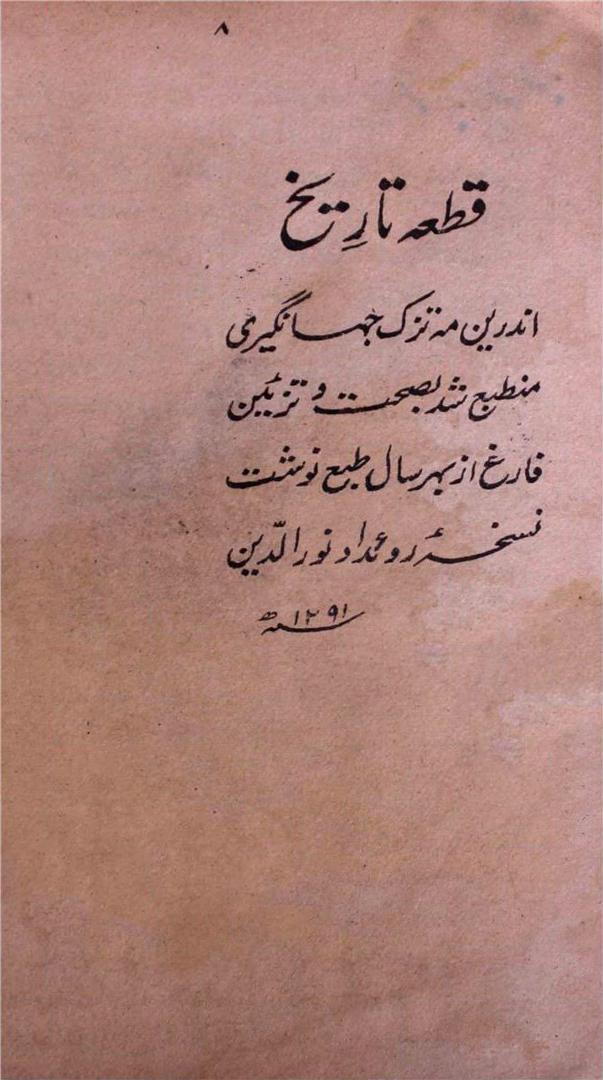 ۸
قطعہ تاریخ
اندرین مہ تزک جہانگیری
منطبع شد بصحت و تزئین
فارغ از بہر سال طبع نوشت
نسخۂ روئداد نور الدّین
سنہ ۱۲۹۱ھ